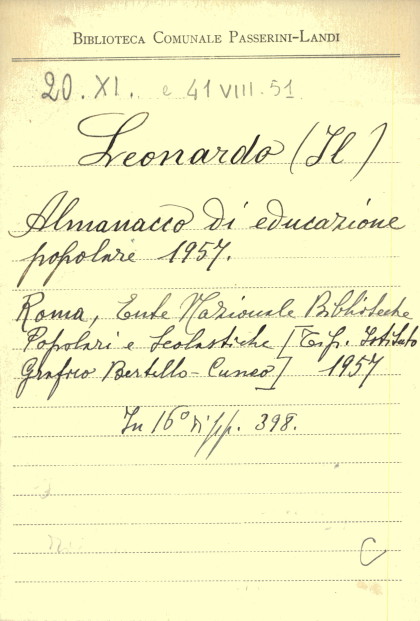 BIBLIOTECA COMUNALE PASSERINI-LANDI
20. XI. e 41 VIII. 51
Leonardo (Il)
Almanacco di educazione
popolare 1957.
Roma, Ente Nazionale Biblioteche
Popolari e Scolastiche [Tip. Istituto
Grafico Bertello-Cuneo] 1957
In 16° di pp. 398.
C